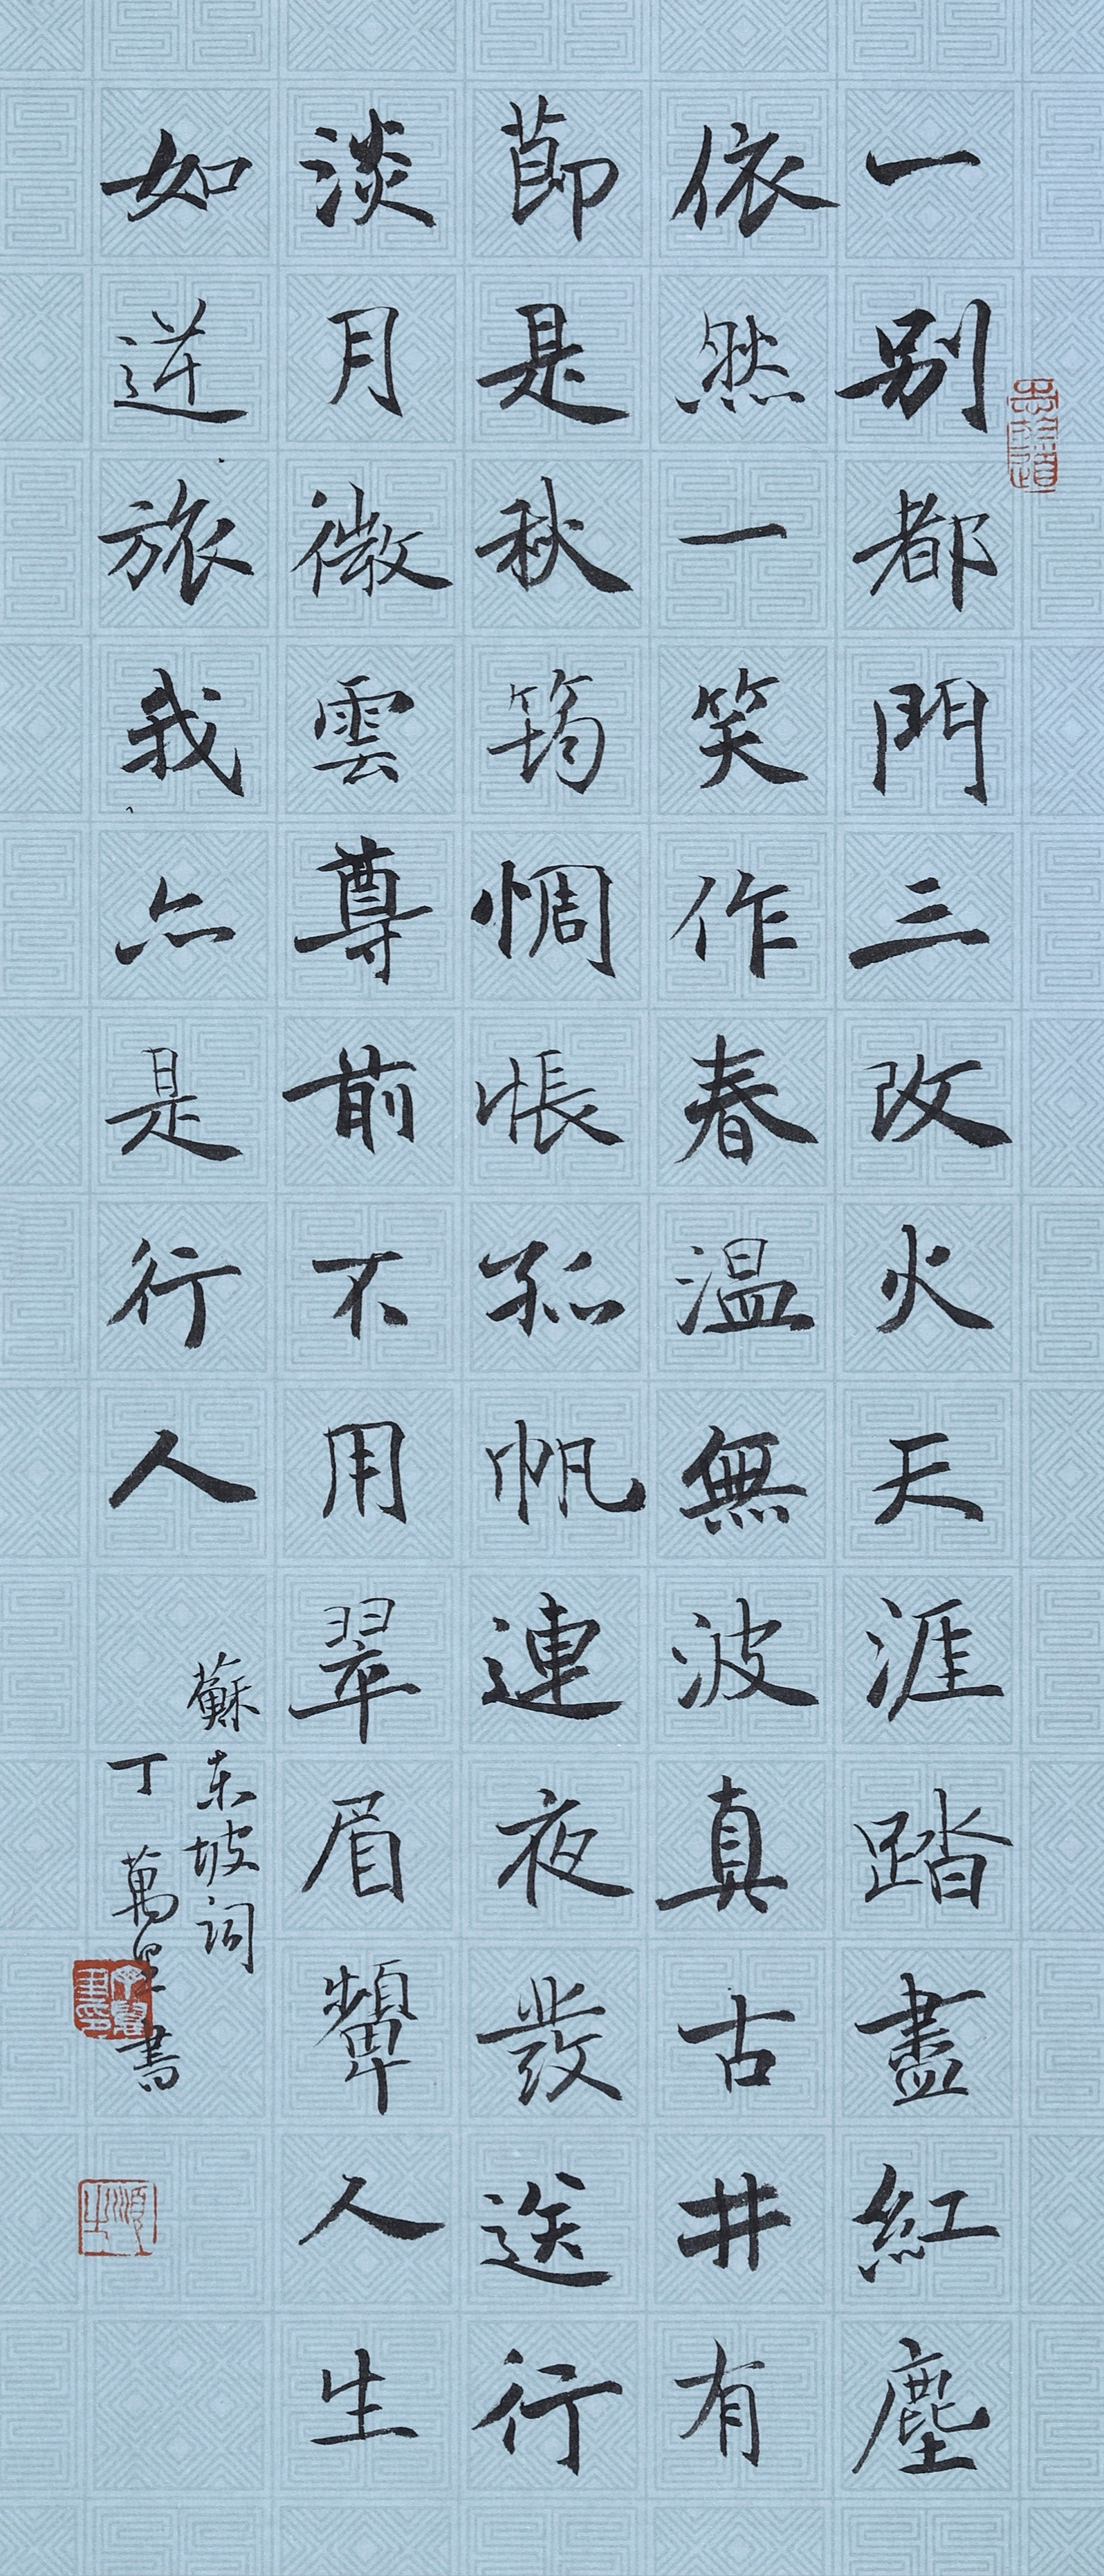 一別都門三改火天涯踏盡紅塵
依然一笑作春溫無波真古井有
莭是秋筠惆悵孤帆連夜發送行
淡月微雲尊前不用翠眉顰人生
如逆旅我亦是行人
蘇東坡詞
丁萬里書